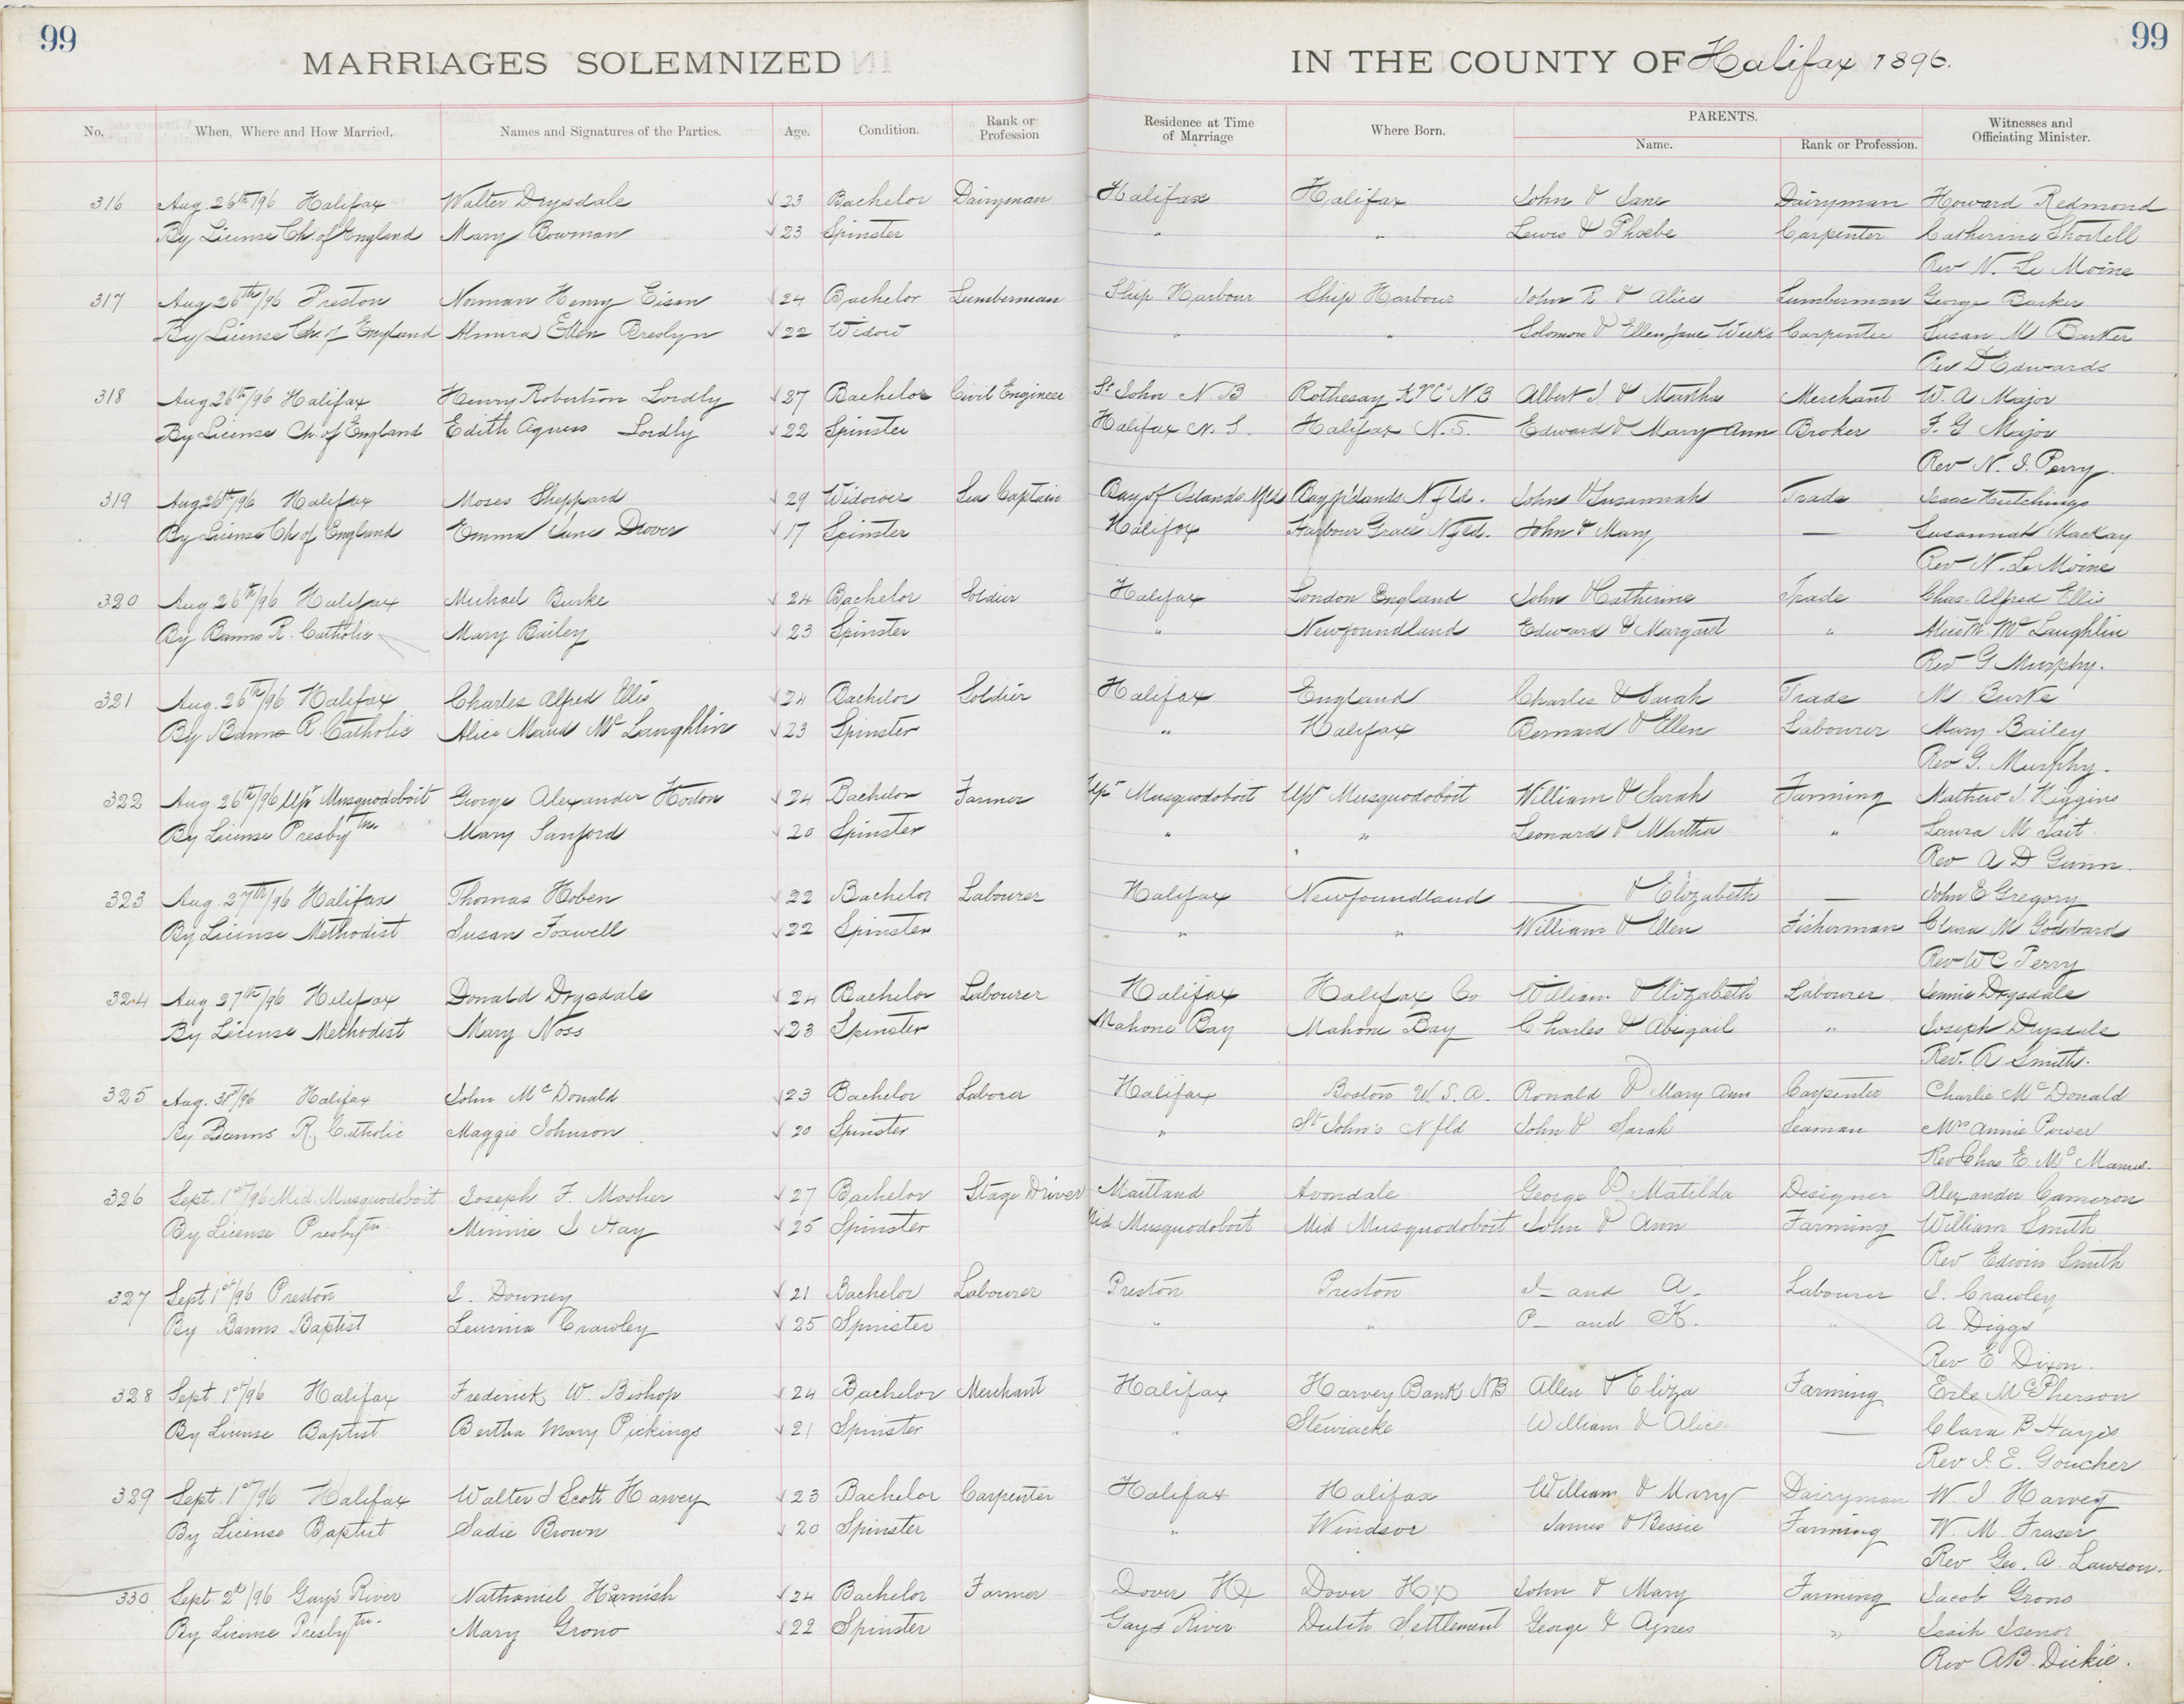 99
99
MARRIAGES SOLEMNIZED
IN THE COUNTY OF Halifax 1896.
No. When, Where and How Married. Names and Signatures of the Parties. Age. Condition. Rank or Profession Residence at Time of Marriage Where Born. PARENTS. Name. Rank or Profession. Witnesses and Officiating Minister.
316 Aug. 26th/96 Halifax Walter Drysdale √23 Bachelor Dairyman Halifax Halifax John & Jane Dairyman Howard Redmond
By License Ch. of England Mary Bowman √23 Spinster " " Lewis & Phoebe Carpenter Catherine Shortell
Rev N. Le Moine
317 Aug 26th/96 Preston Norman Henry Eisan √24 Bachelor Lumberman Ship Harbour Ship Harbour John R. & Alice Lumberman George Barker
By License Ch. of England Almira Ellen Breslyn √22 Widow " " Solomon & Ellen Jane Weeks Carpenter Susan M Barker
Rev D Edwards
318 Aug 26th/96 Halifax Henry Robertson Lordly √27 Bachelor Civil Engineer St John N. B Rothesay NB Albert J. & Martha Merchant W. A Major
By License Ch. of England Edith Agnes Lordly √22 Spinster Halifax N. S. Halifax N. S. Edward & Mary Ann Broker F. G Major
Rev N. I. Perry.
319 Aug 26th/96 Halifax Moses Sheppard √29 Widower Sea Captain Bay of Islands Nfld Bay of Islands Nfld. John & Susannah Trade Isaac Hutchings
By License Ch of England Emma Jane Drover √17 Spinster Halifax Harbour Grace Nfld. John & Mary — Susannah Mackay
Rev N. Le Moine
320 Aug 26th/96 Halifax Michael Burke √24 Bachelor Soldier Halifax London England John & Catherine Trade Chas. Alfred Ellis
By Banns R. Catholic Mary Bailey √23 Spinster " Newfoundland Edward & Margaret " Alice M. McLaughlin
Rev G. Murphy.
321 Aug. 26th/96 Halifax Charles Alfred Ellis √24 Bachelor Soldier Halifax England Charles & Sarah Trade M. Burke
By Banns R. Catholic Alice Maud McLaughlin √23 Spinster " Halifax Bernard & Ellen Labourer Mary Bailey
Rev G. Murphy.
322 Aug 26th/96 Upr Musquodoboit George Alexander Horton √24 Bachelor Farmer Upr Musquodoboit Upr Musquodoboit William & Sarah Farming Mathew J. Higgins
By License Presbytrn Mary Sanford √20 Spinster " " Leonard & Martha " Laura M Tait.
Rev A D Gunn.
323 Aug. 27th/96 Halifax Thomas Hoben √22 Bachelor Labourer Halifax Newfoundland — & Elizabeth — John E Gregory
By License Methodist Susan Foxwell √22 Spinster " " William & Ellen Fisherman Clara M Goddard
Rev W C Perry
324 Aug 27th/96 Halifax Donald Drysdale √24 Bachelor Labourer Halifax Halifax Co William & Elizabeth Labourer Jennie Drysdale
By License Methodist Mary Noss √23 Spinster Mahone Bay Mahone Bay Charles & Abigail " Joseph Drysdale
Rev. R Smith.
325 Aug. 31st/96 Halifax John McDonald √23 Bachelor Laborer Halifax Boston U. S. A. Ronald & Mary Ann Carpenter Charlie McDonald
By Banns R. Catholic Maggie Johnson √20 Spinster " St John's Nfld John & Sarah Seaman Mrs Annie Power
Rev Chas E. McManus.
326 Sept. 1st/96 Mid. Musquodoboit Joseph F. Mosher √27 Bachelor Stage Driver Maitland Avondale George & Matilda Designer Alexander Cameron
By License Presbytrn. Minnie I Hay √25 Spinster Mid Musquodoboit Mid Musquodoboit John & Ann Farming William Smith
Rev Edwin Smith
327 Sept 1st/96 Preston J. Downey √21 Bachelor Labourer Preston Preston J— and A— Labourer J. Crawley
By Banns Baptist Crawley √25 Spinster " " P— and K. " A. Diggs
Rev E Dixon.
328 Sept. 1st/96 Halifax Frederick W. Bishop √24 Bachelor Merchant Halifax Harvey Bank NB Allen & Eliza Farming Erle McPherson
By License Baptist Bertha Mary Pickings √21 Spinster " Stewiacke William & Alice — Clara B Hayes
Rev J. E. Goucher
329 Sept. 1st/96 Halifax Walter J Scott Harvey √23 Bachelor Carpenter Halifax Halifax William & Mary Dairyman W. J. Harvey
By License Baptist Sadie Brown √20 Spinster " Windsor James & Bessie Farming W. M. Fraser
Rev Geo. A. Lawson.
330 Sept. 2d/96 Gay's River Nathaniel Harnish √24 Bachelor Farmer Dover Hx Dover Hx John & Mary Farming Jacob Grono
By License Presbytrn. Mary Grono √22 Spinster Gays River Dutch Settlement George & Agnes " Isaih Isenor
Rev A B. Dickie.